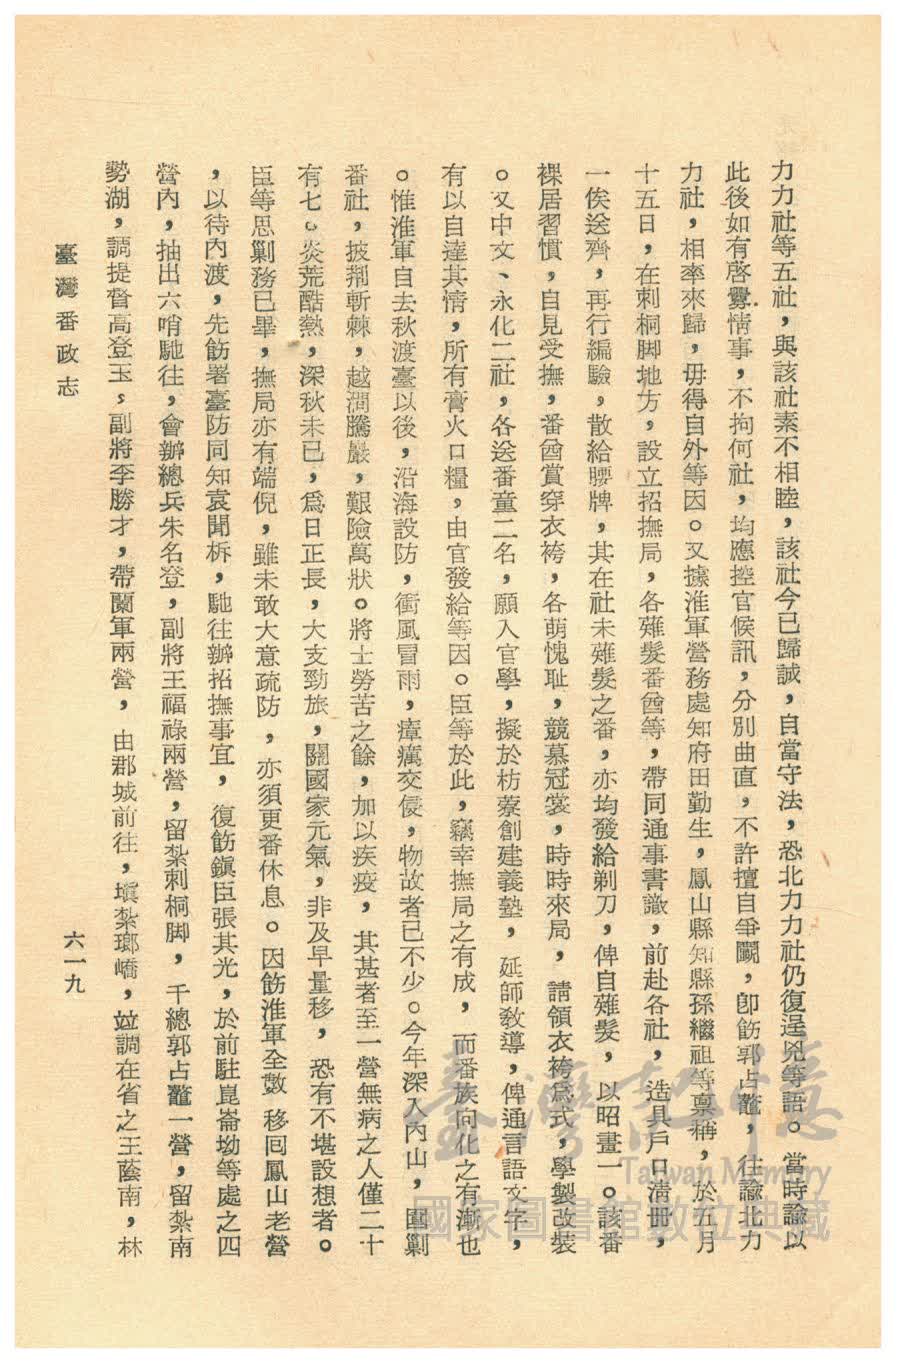 力力社等五社，與該社素不相睦，該社今已歸誠，自當守法，恐北力力社仍復逞兇等語。當時諭以
此後如有啓釁情事，不拘何社，均應控官候訊，分別曲直，不許擅自爭鬭，卽飭郭占鼇，往諭北力
力社，相率來歸，毋得自外等因。又據淮軍營務處知府田勤生，鳳山縣知縣孫繼祖等稟稱，於五月
十五日，在刺桐脚地方，設立招撫局，各薙髮番酋等，帶同通事書識，前赴各社，造具戶口淸册，
一俟送齊，再行編驗，散給腰牌，其在社未薙髮之番，亦均發給剃刀，俾自薙髮，以昭畫一。該番
裸居習慣，自見受撫，番酋賞穿衣袴，各萌愧耻，競慕冠裳，時時來局，請領衣袴爲式，學製改裝
。又中文、永化二社，各送番童二名，願入官學，擬於枋藔創建義塾，延師敎導，俾通言語文字，
有以自達其情，所有膏火口糧，由官發給等因。臣等於此，竊幸撫局之有成，而番族向化之有漸也
。惟淮軍自去秋渡臺以後，沿海設防，衝風冒雨，瘴癘交侵，物故者已不少。今年深入內山，圍剿
番社，披荆斬棘，越澗騰巖，艱險萬狀。將士勞苦之餘，加以疾疫，其甚者至一營無病之人僅二十
有七。炎荒酷熱，深秋未已，爲日正長，大支勁旅，關國家元氣，非及早量移，恐有不堪設想者。
臣等思剿務已畢，撫局亦有端倪，雖未敢大意疏防，亦須更番休息。因飭淮軍全數移囘鳳山老營
，以待內渡，先飭署臺防同知袁聞柝，馳往辦招撫事宜，復飭鎭臣張其光，於前駐崑崙坳等處之四
營內，抽出六哨馳往，會辦總兵朱名登，副將王福祿兩營，留紮刺桐脚，千總郭占鼇一營，留紮南
勢湖，調提督高登玉，副將李勝才，帶蘭軍兩營，由郡城前往，塡紮瑯嶠，竝調在省之王蔭南，林
臺灣番政志
六一九
臺灣記憶
Taiwan Memory
國家圖書館數位典藏